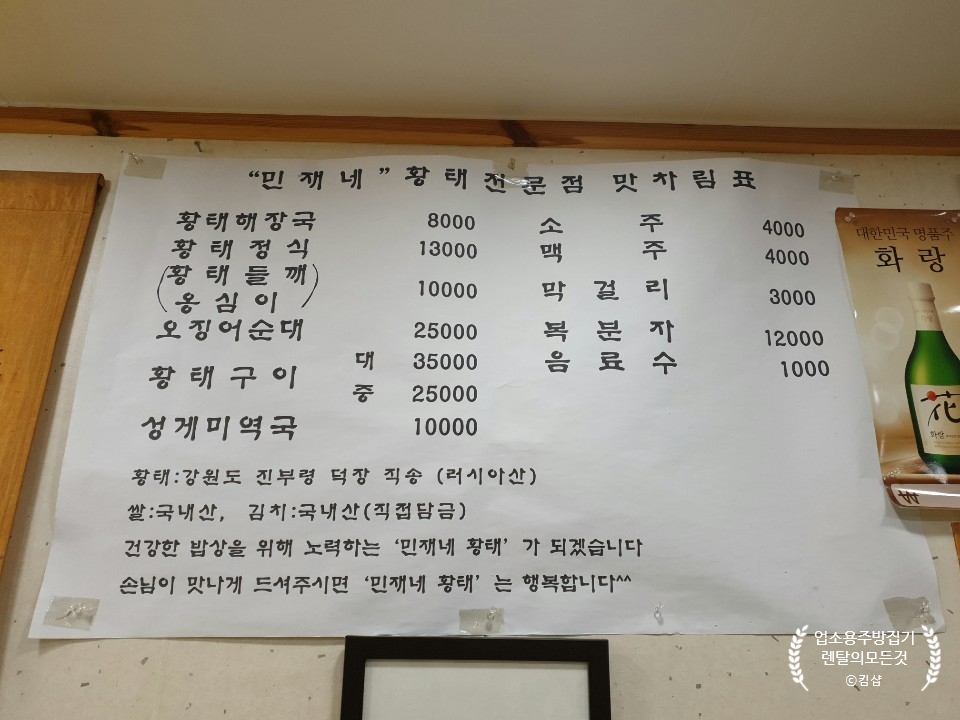 “민재네” 황태전문점 맛차림표
황태해장국 8000
황태정식 13000
(황태들깨
옹심이) 10000
오징어순대 25000
황태구이 대 35000
중 25000
성게미역국 10000
소주 4000
맥주 4000
막걸리 3000
복분자 12000
음료수 1000
황태:강원도 진부령 덕장 직송 (러시아산)
쌀:국내산, 김치:국내산(직접담금)
건강한 밥상을 위해 노력하는 ‘민재네 황태’ 가 되겠습니다
손님이 맛나게 드셔주시면 ‘민재네 황태’ 는 행복합니다^^
대한민국 명품주
화랑
花
화랑
업소용주방집기
렌탈의모든것
©킴샵